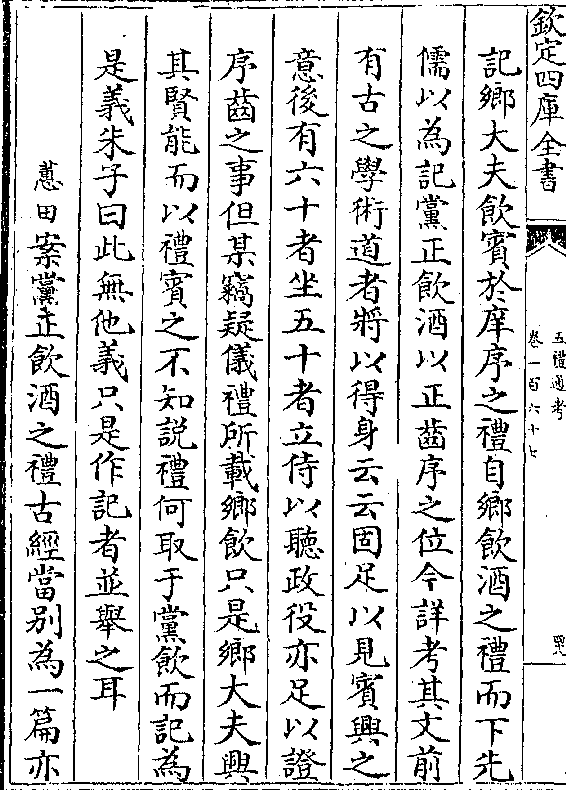 欽定四庫全書
五禮通考
卷一百六十七
記鄉大夫飲賓於庠序之禮自鄉飲酒之禮而下先
儒以為記黨正飲酒以正齒序之位今詳考其文前
有古之學術道者將以得身云云固足以見賓興之
意後有六十者坐五十者立侍以聽政役亦足以證
序齒之事但某竊疑儀禮所載鄉飲只是鄉大夫興
其賢能而以禮賓之不知説禮何取于黨飲而記為
是義朱子曰此無他義只是作記者並舉之耳
蕙田案黨正飲酒之禮古經當别為一篇亦